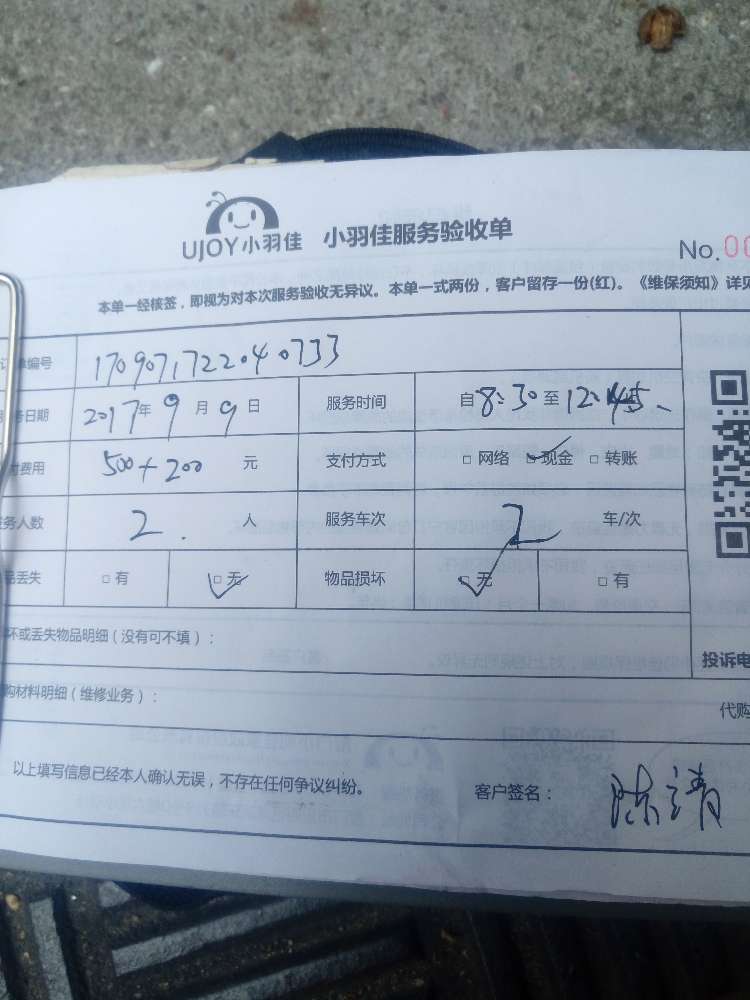 UJOY小羽佳 小羽佳服务验收单
No.00
本单一经核签,即视为对本次服务验收无异议。本单一式两份,客户留存一份(红)。《维保须知》详见
单编号 1709071722040733
务日期 2017年9月9日 服务时间 自8:30至12:45
付费用 500+200 元 支付方式 □网络 ☑现金 □转账
务人数 2. 人 服务车次 2 车/次
品丢失 □有 ☑无 物品损坏 ☑无 □有
坏或丢失物品明细(没有可不填):
投诉电
购材料明细(维修业务):
代购
以上填写信息已经本人确认无误,不存在任何争议纠纷。 客户签名: